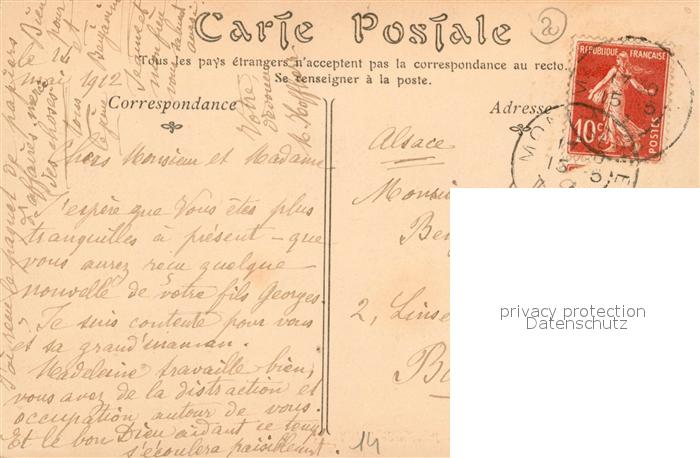 Carte Postale
Tous les pays étrangers n'acceptent pas la correspondance au recto.
Se renseigner à la poste.
Correspondance
Adresse
REPUBLIQUE FRANÇAISE
10c
POSTES
20
le 14
mai 1912
Chers Monsieur et Madame
J'espère que Vous êtes plus
tranquilles à présent – que
vous aurez reçu quelque
nouvelle de votre fils Georges.
Je suis contente pour vous
et sa grand'maman.
Madeleine travaille bien,
vous avez de la distraction et
occupation autour de vous.
Et le bon Dieu aidant ce temps
s'écoulera paisiblement.
Votre
dévouée
reçu le paquet de papiers
Alsace
2,
14
privacy protection
Datenschutz